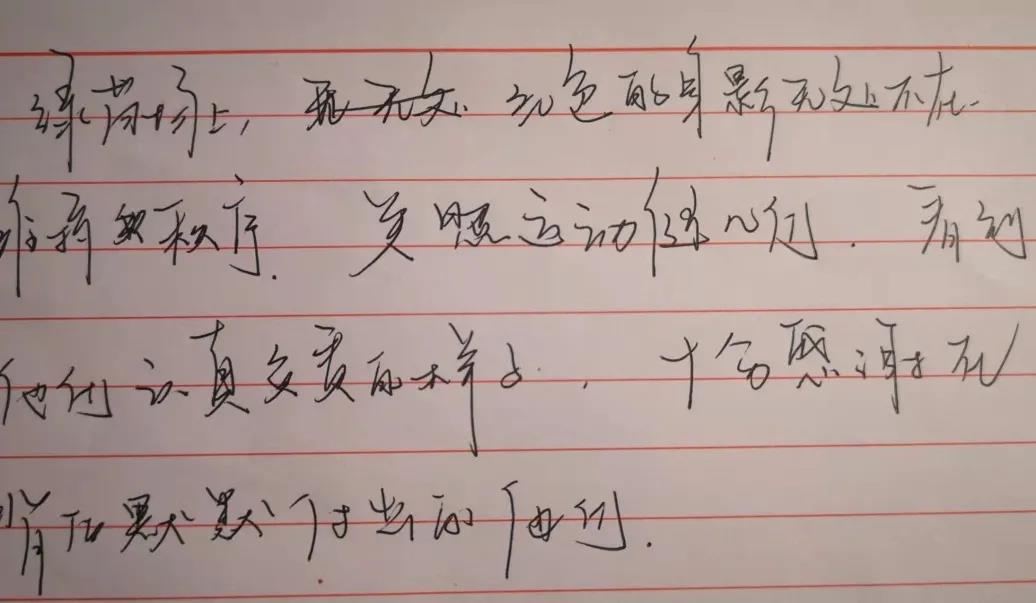 绿茵场上，红色的身影无处不在.
维持秩序. 关照运动健儿们. 看到
他们认真负责的样子. 十分感谢在
背后默默付出的他们.